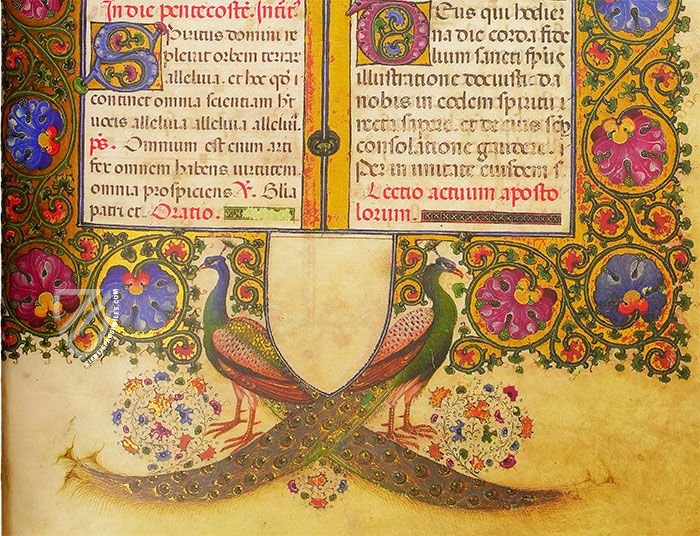 In die pentecostē. Intit̄.
Spiritus domini re
pleuit orbem terrar̄
alleluia. et hoc qd̄
continet omnia scientiam ht̄
uocis alleluia alleluia allelui.
ps̄. Omnium est enim arti
fex omnem habens uirtutem
omnia prospiciens ℣. Glīa
patri et. Oratio.
Deus qui hodier
na die corda fide
lium sancti sp̄us
illustratione docuisti. da
nobis in eodem spiritu
recta sapere. et de eius sēp
consolatione gaudere.
per in unitate eiusdem s̄.
Lectio actuum aposto
lorum.